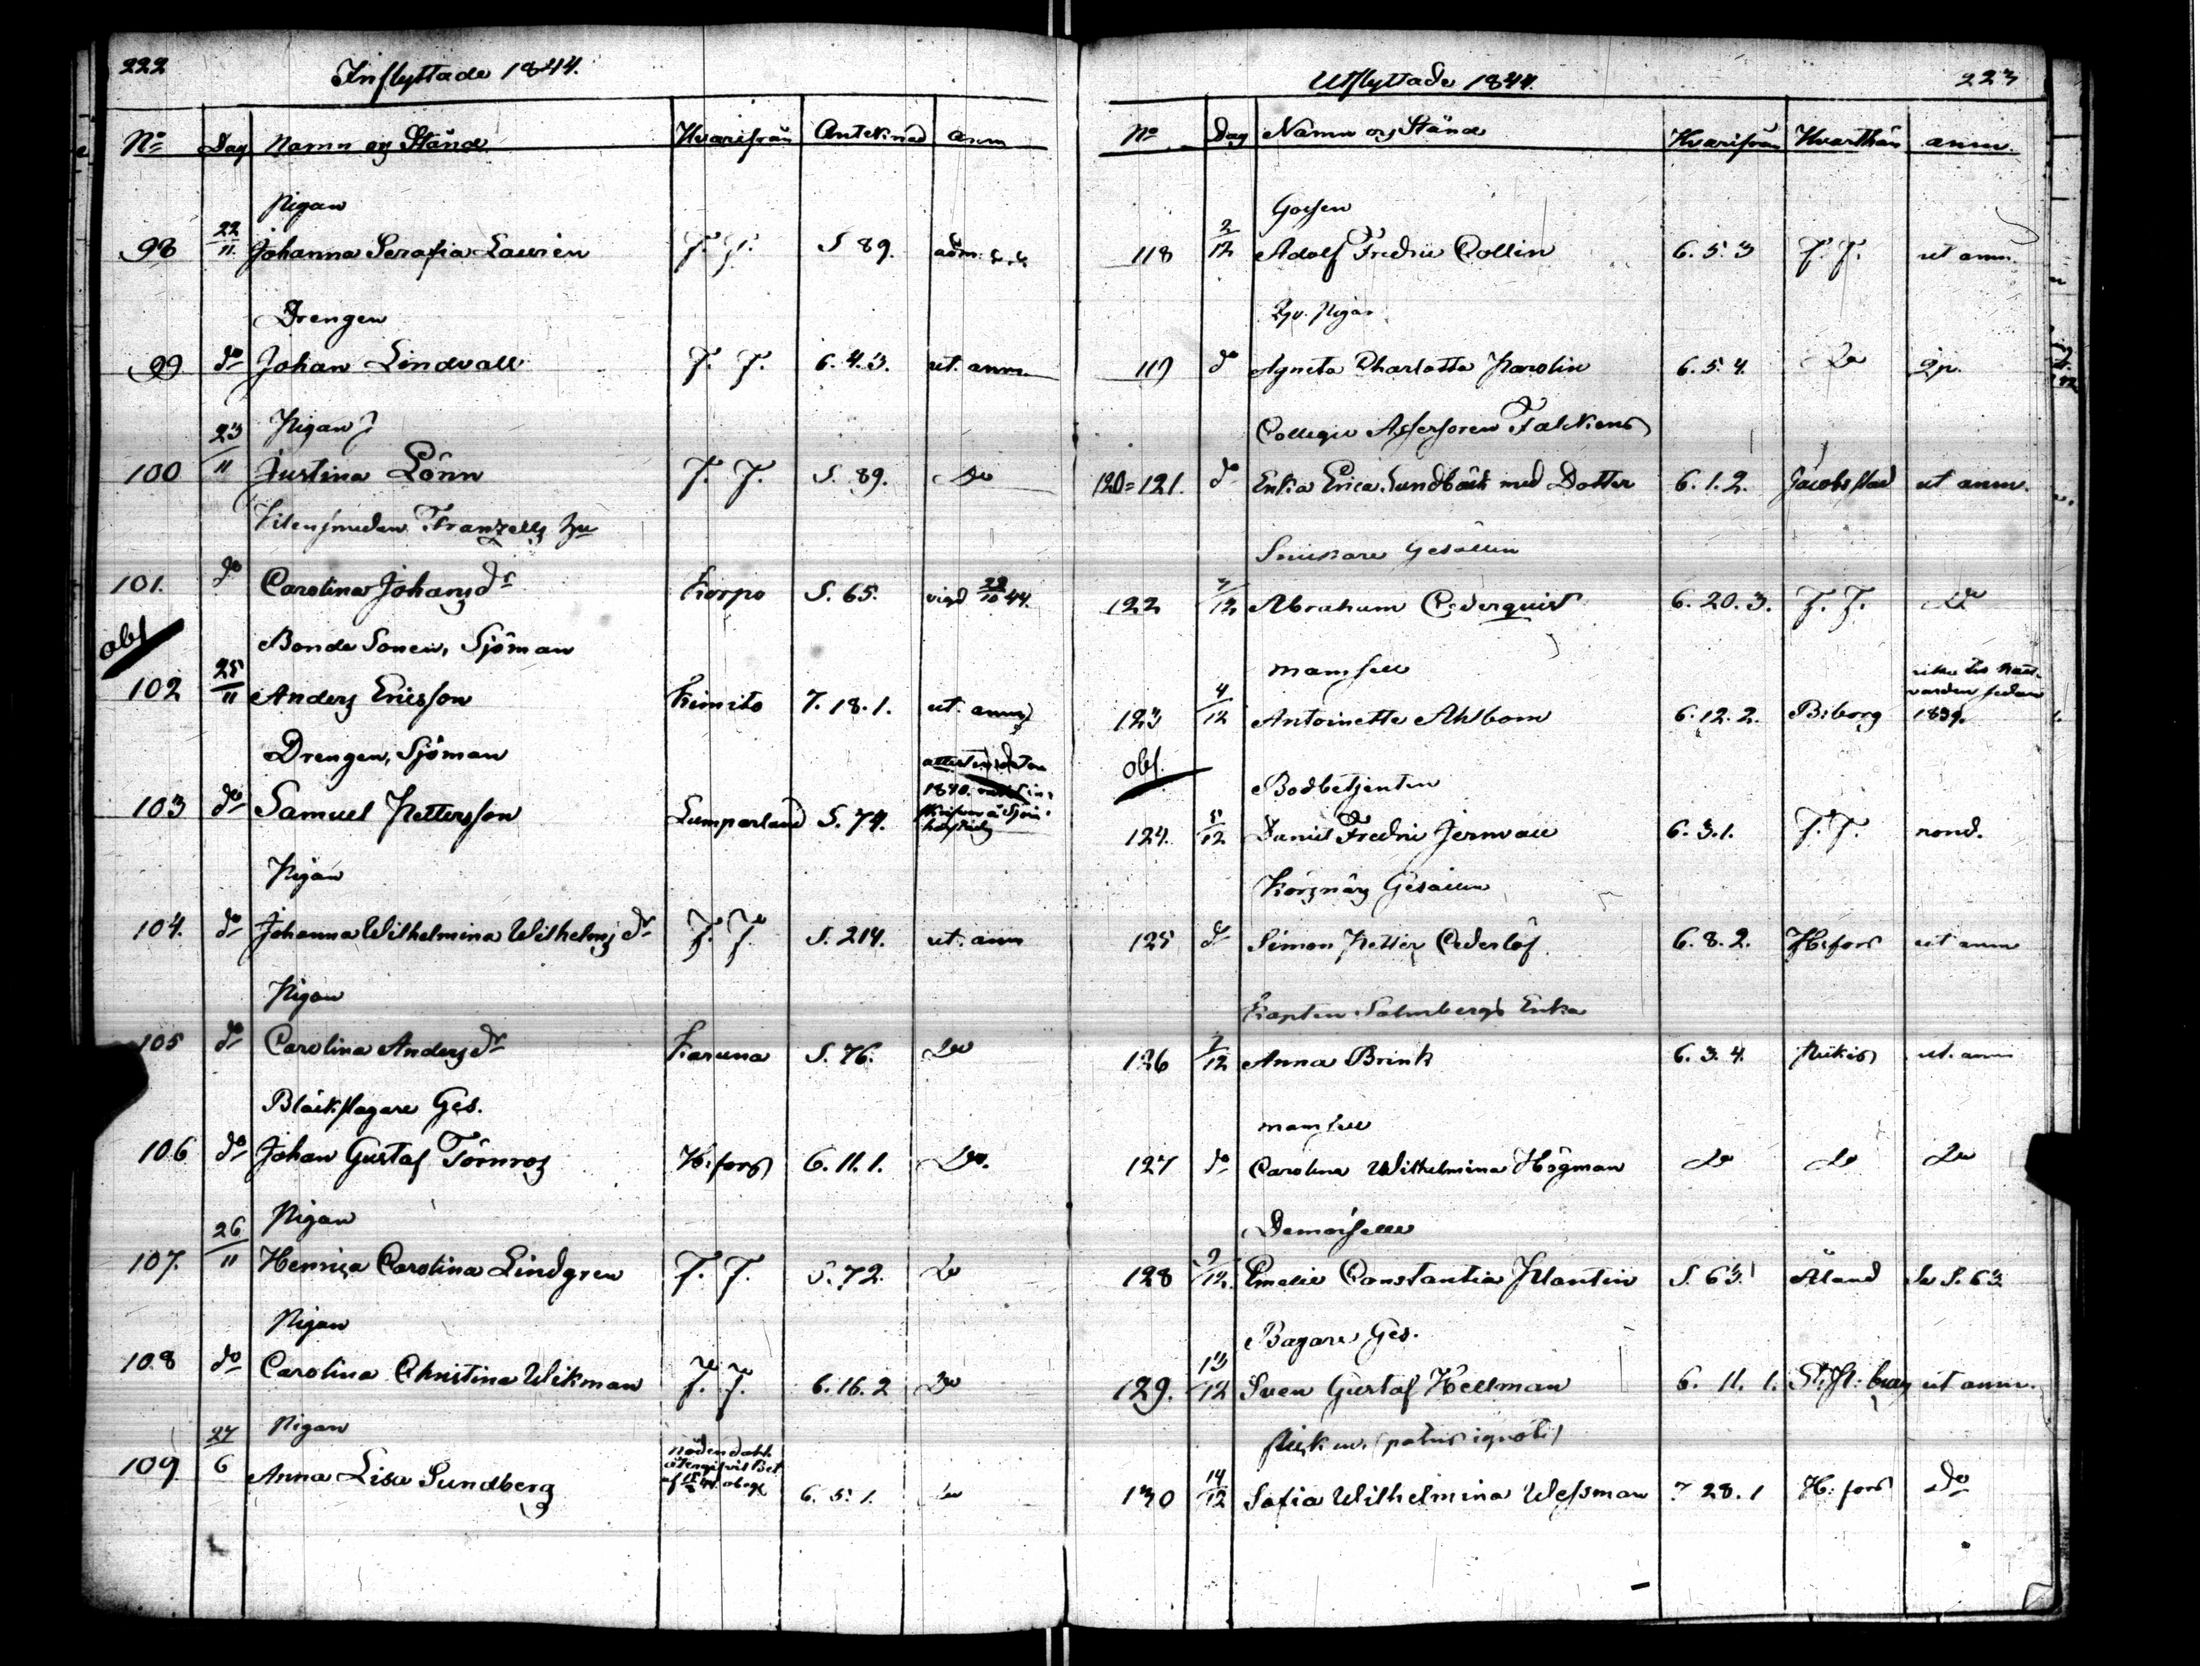 222
Inflyttade 1844.
No Dag Namn og Stånd Hvarifrån Anteknad anm
Pigan
98 22/11 Johanna Serafia Laurén F. F. S. 89. adm.
Drengen
99 do Johan Lindvall F. F. 6. 4. 3. ut. anm.
Pigan
100 23/11 Justina Lönn F. F. S. 89. Do
Franzells hu
101. do Carolina Johansdr Korpo S. 65. vigd 22/10 44.
obs
Bonde Sonen, Sjöman
102 25/11 Anders Ericsson Kimito 7. 18. 1. ut. anm
Drengen, Sjöman
103 do Samuel Pettersson Lumparland S. 74. 1840.
Pigan
104. do Johanna Wilhelmina Wilhelmsdr F. F. S. 214. ut. anm
Pigan
105 do Carolina Andersdr Karuna S. 76. Do
Bläckslagare Ges.
106 do Johan Gustaf Törnros H:fors 6. 11. 1. Do.
Pigan
107. 26/11 Henrica Carolina Lindgren F. F. S. 72. Do
Pigan
108 do Carolina Christina Wikman F. F. 6. 16. 2 Do
Pigan
109 27/6 Anna Lisa Sundberg Nådendahl 6. 5. 1. Do
Utflyttade 1844.
223
No Dag Namn og Stånd Hvarifrån Hvarthän anm.
Gossen
118 2/12 Adolf Fredric Collin 6. 5. 3 F. F. ut anm.
Pigan
119 do Agneta Charlotta Karolin 6. 5. 4. Do
Collegie Assessoren Falckens
120=121. do Enka Erica Sundbäck med Dotter 6. 1. 2. Jacobstad ut anm.
Snickare Gesällen
122 /12 Abraham Cederquist 6. 20. 3. F. F. Do
Mamsell
123 4/12 Antoinette Ahlbom 6. 12. 2. B:borg nattvarden sedan 1839.
obs.
Bodbetjenten
124. 5/12 Daniel Fredric Jernvall 6. 3. 1. F. F. nond.
Gesällen
125 do Simon Petter Cederlöf 6. 8. 2. H:fors ut anm
Kapten Salmbergs Enka
126 7/12 Anna Brink 6. 3. 4. Pikis ut. anm
Mamsell
127 do Carolina Wilhelmina Högman Do Do Do
Demoiselle
128 9/12. Emelie Constantia Plantin S. 63. Åland Se S. 63
Bagare Ges.
129. 13/12 Sven Gustaf Hellman 6. 11. 1. St. P:burg ut anm.
(patris ignoti)
130 14/12 Sofia Wilhelmina Wessman 7 28. 1 H:fors Do